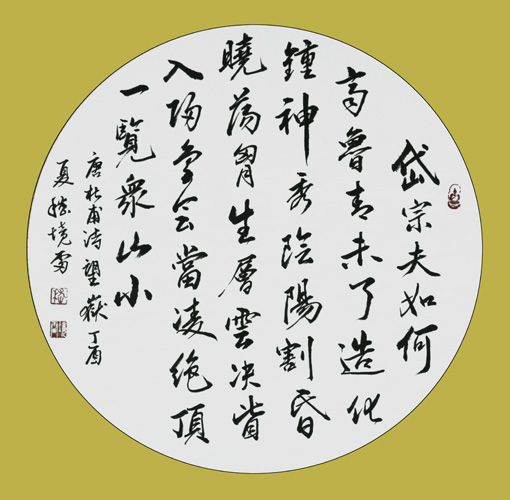 岱宗夫如何
齊魯青未了造化
鍾神秀陰陽割昏
曉蕩胷生層雲決眥
入歸鳥會當凌絕頂
一覽衆山小
唐杜甫詩望嶽 丁酉
夏